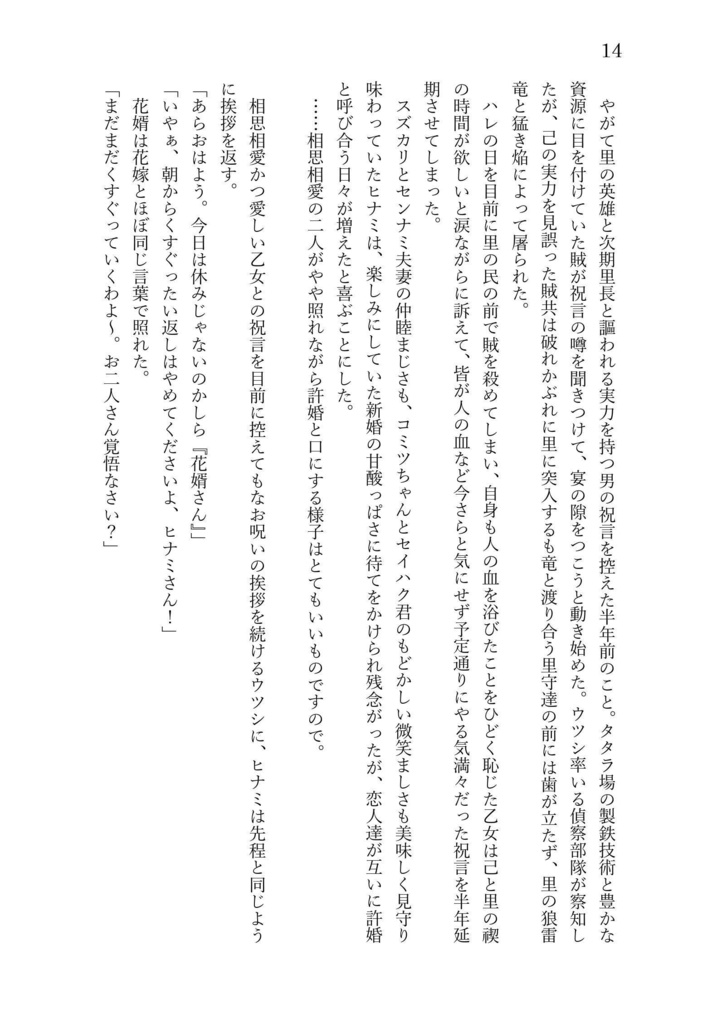 14
　やがて里の英雄と次期里長と謳われる実力を持つ男の祝言を控えた半年前のこと。タタラ場の製鉄技術と豊かな
資源に目を付けていた賊が祝言の噂を聞きつけて、宴の隙をつこうと動き始めた。ウツシ率いる偵察部隊が察知し
たが、己の実力を見誤った賊共は破れかぶれに里に突入するも竜と渡り合う里守達の前には歯が立たず、里の狼雷
竜と猛き焔によって屠られた。
　ハレの日を目前に里の民の前で賊を殺めてしまい、自身も人の血を浴びたことをひどく恥じた乙女は己と里の禊
の時間が欲しいと涙ながらに訴えて、皆が人の血など今さらと気にせず予定通りにやる気満々だった祝言を半年延
期させてしまった。
　スズカリとセンナミ夫妻の仲睦まじさも、コミツちゃんとセイハク君のもどかしい微笑ましさも美味しく見守り
味わっていたヒナミは、楽しみにしていた新婚の甘酸っぱさに待てをかけられ残念がったが、恋人達が互いに許婚
と呼び合う日々が増えたと喜ぶことにした。
　……相思相愛の二人がやや照れながら許婚と口にする様子はとてもいいものですので。
　相思相愛かつ愛しい乙女との祝言を目前に控えてもなお呪いの挨拶を続けるウツシに、ヒナミは先程と同じよう
に挨拶を返す。
「あらおはよう。今日は休みじゃないのかしら『花婿さん』」
「いやぁ、朝からくすぐったい返しはやめてくださいよ、ヒナミさん！」
　花婿は花嫁とほぼ同じ言葉で照れた。
「まだまだくすぐっていくわよ～。お二人さん覚悟なさい？」